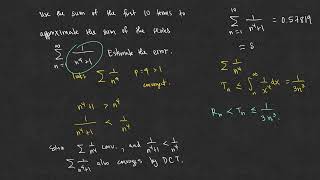 Use the sum of the first 10 terms to
approximate the sum of the series
∑_{n=1}^{∞} 1/(n⁴+1) Estimate the error.
∑ 1/n⁴ p=4 > 1
convergent
n⁴+1 > n⁴
1/(n⁴+1) < 1/n⁴
Since ∑ 1/n⁴ conv., and 1/(n⁴+1) < 1/n⁴
∑ 1/(n⁴+1) also converges by DCT.
∑_{n=1}^{10} 1/(n⁴+1) = 0.57819
≈ s
∑ 1/n⁴
T_n ≤ ∫_n^∞ 1/x⁴ dx = 1/3n³
R_n < T_n ≤ 1/3n³